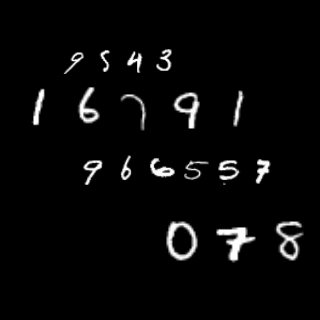 9543
16791
966557
078